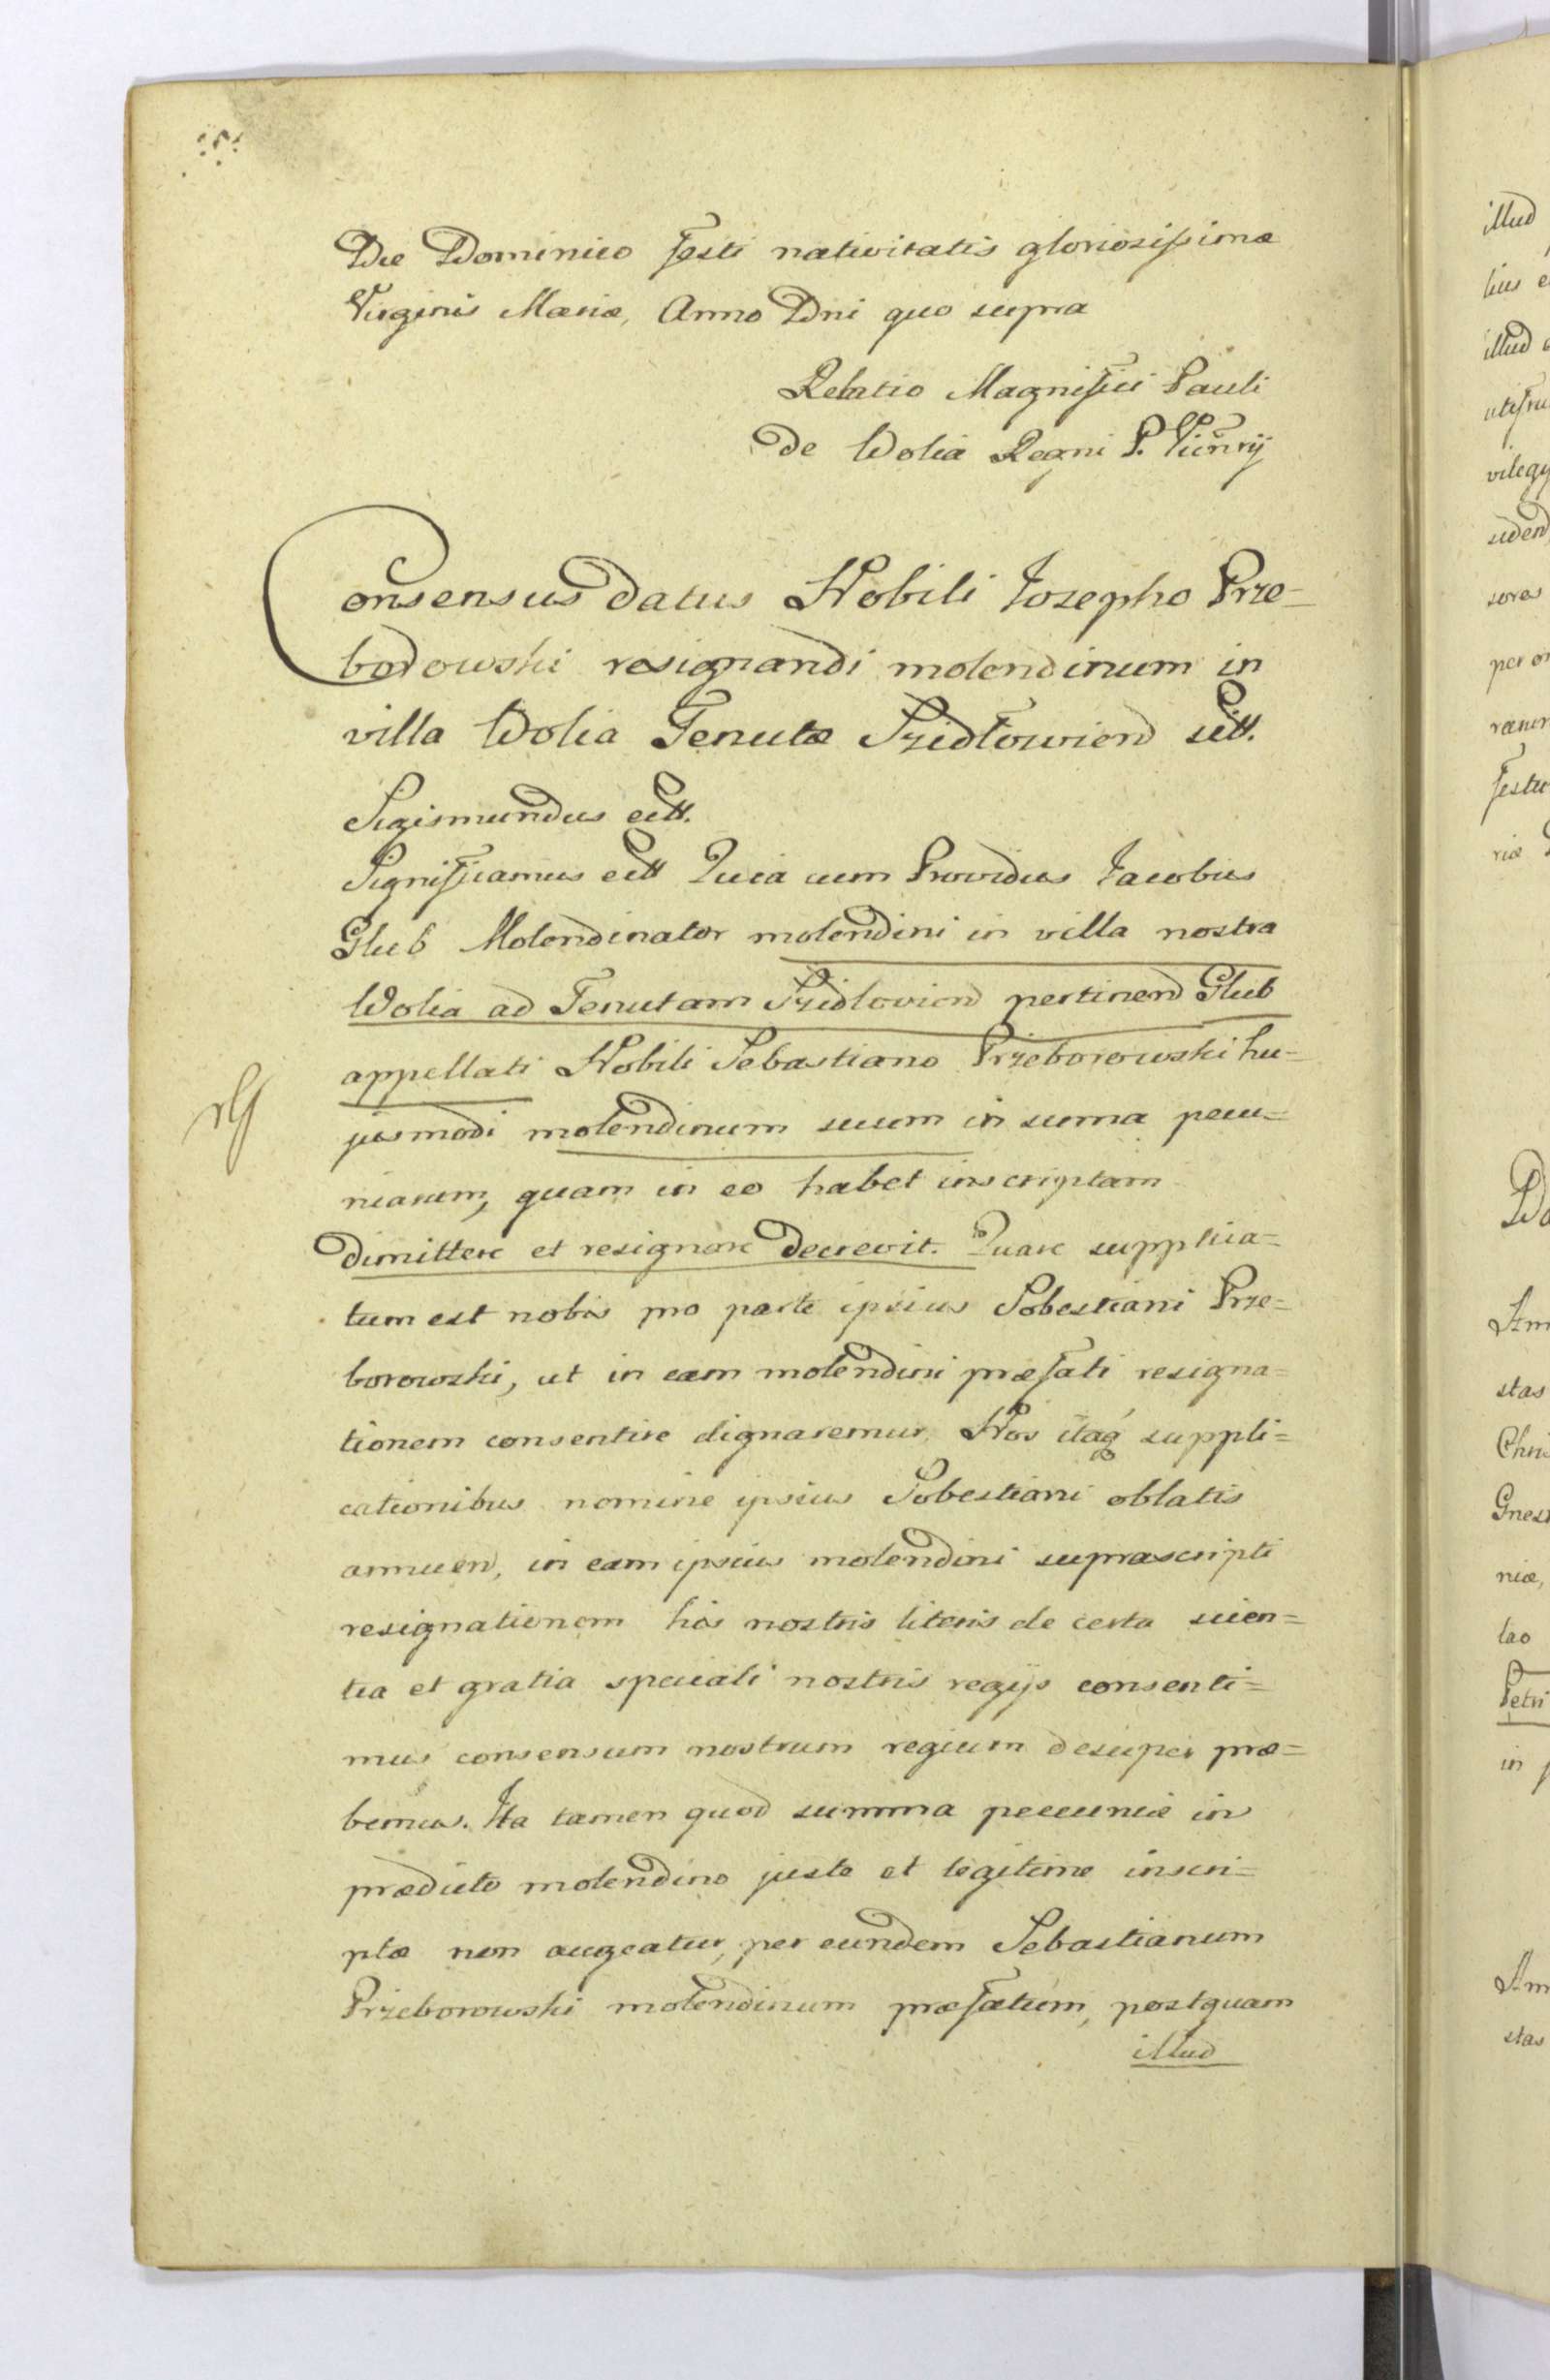 Die Dominico festi nativitatis gloriosissimæ
Virginis Mariæ, Anno Dni quo supra
Relatio Magnifici Pauli
de Wolia Regni P. Vicnrÿ
Consensus datus Nobili Josepho Prze=
borowski resignandi molendinum in
villa Wolia Tenutæ Szidłovien ett.
Sigismundus ett.
Significamus ett Quia cum Providus Jacobus
Glub Molendinator molendini in villa nostra
Wolia ad Tenutam Szidlovien pertinen Glub
appellati Nobili Sebastiano Przeborowski hu=
jusmodi molendinum suum in suma pecu=
niarum, quam in eo habet inscriptam
dimittere et resignare decrevit. Quare supplica=
tum est nobis pro parte ipsius Sobestiani Prze=
borowski, ut in eam molendini præfati resigna=
tionem consentire dignaremur. Nos itaq suppli=
cationibus nomine ipsius Sobestiani oblatis
annuen, in eam ipsius molendini suprascripti
resignationem his nostris literis de certa scien=
tia et gratia speciali nostris regijs consenti=
mus consensum nostrum regium desuper præ=
bemus. Ita tamen quod summa pecuniæ in
prædicto molendino juste et legitime inscri=
ptæ non augeatur, per eundem Sebastianum
Przeborowski molendinum præfatum, postquam
illud
illud
lius
illud
vilegy
suden
sores
per
festu
riæ
stas
Gnes
niæ,
lao
Petri
in
stas